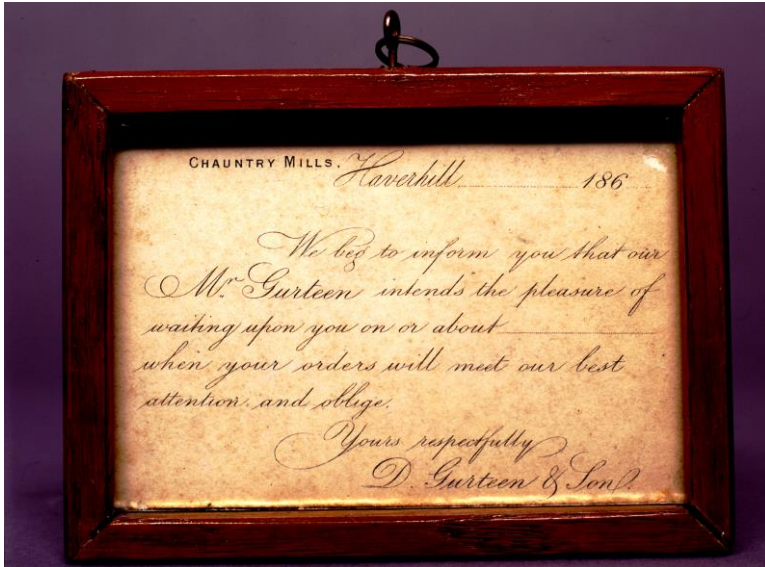 CHAUNTRY MILLS. Haverhill 186
We beg to inform you that our
Mr. Gurteen intends the pleasure of
waiting upon you on or about
when your orders will meet our best
attention and oblige.
Yours respectfully
D. Gurteen & Son